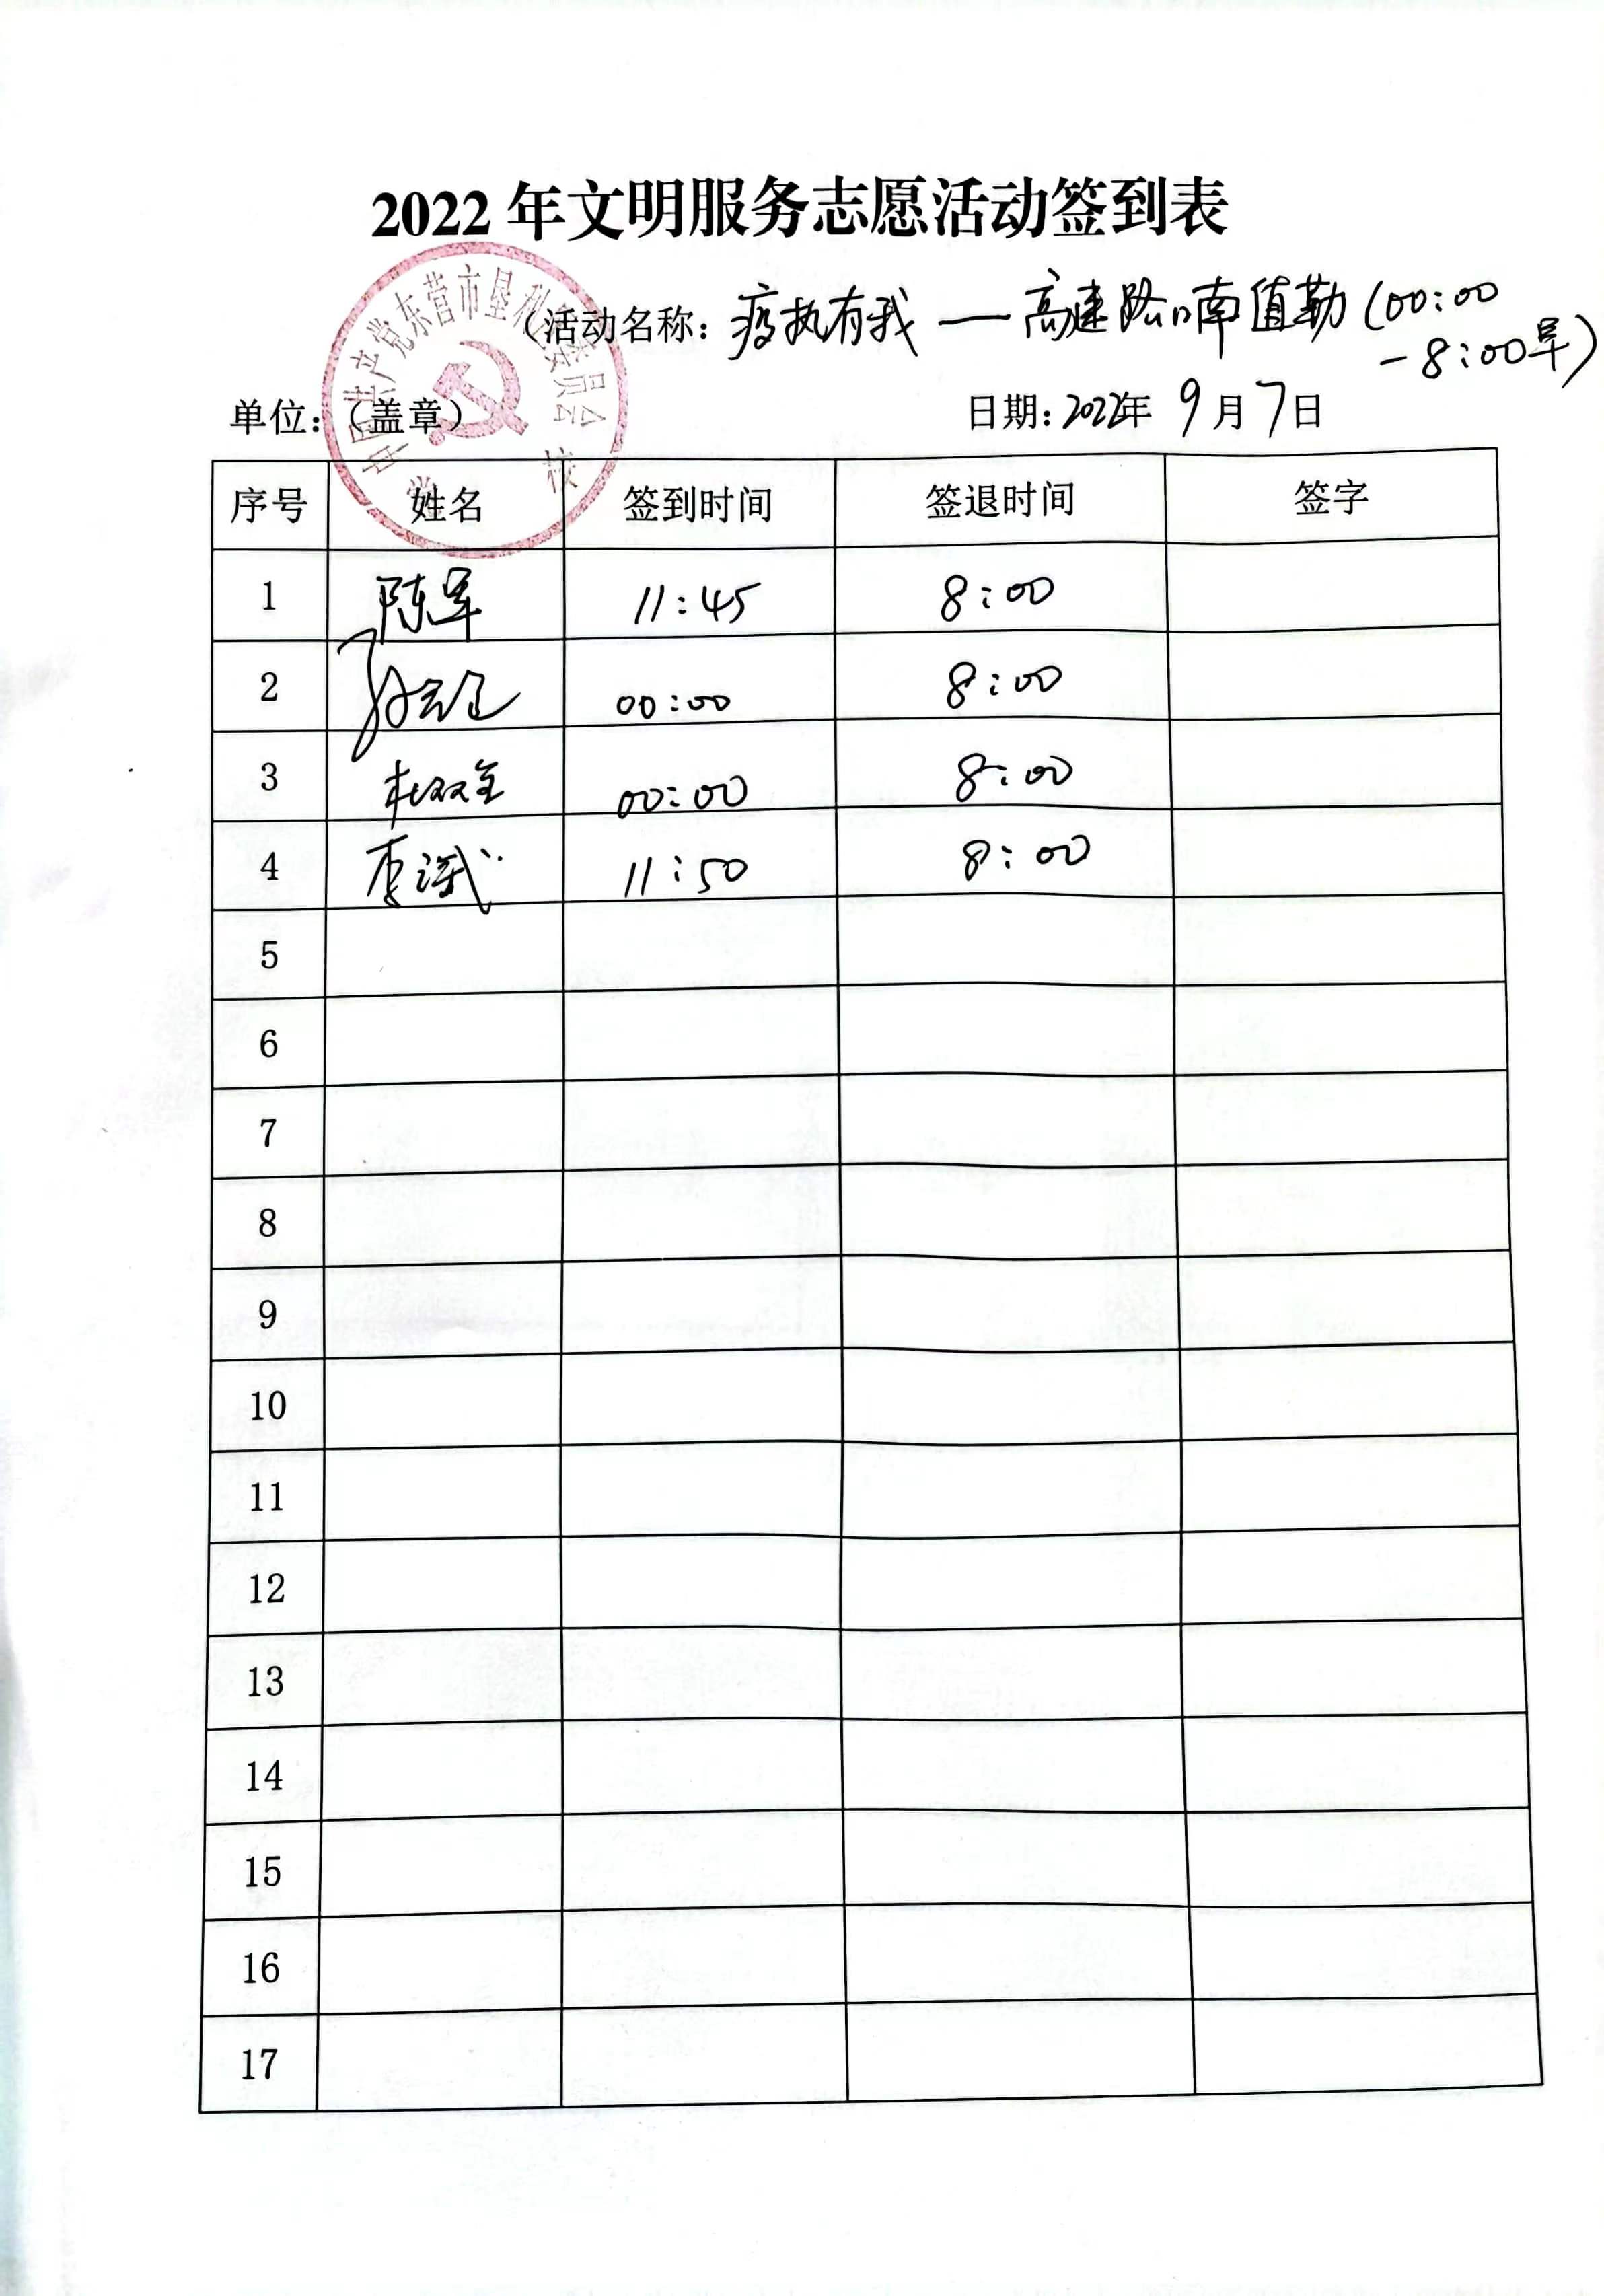 2022年文明服务志愿活动签到表
（活动名称：疫执有我——高速路口南值勤（00:00
-8:00早）
中国共产党东营市垦利区委员会
党校
单位：（盖章） 日期：2022年 9月7日
序号 姓名 签到时间 签退时间 签字
1 陈军 11:45 8:00
2 00:00 8:00
3 杜双全 00:00 8:00
4 李诚 11:50 8:00
5
6
7
8
9
10
11
12
13
14
15
16
17